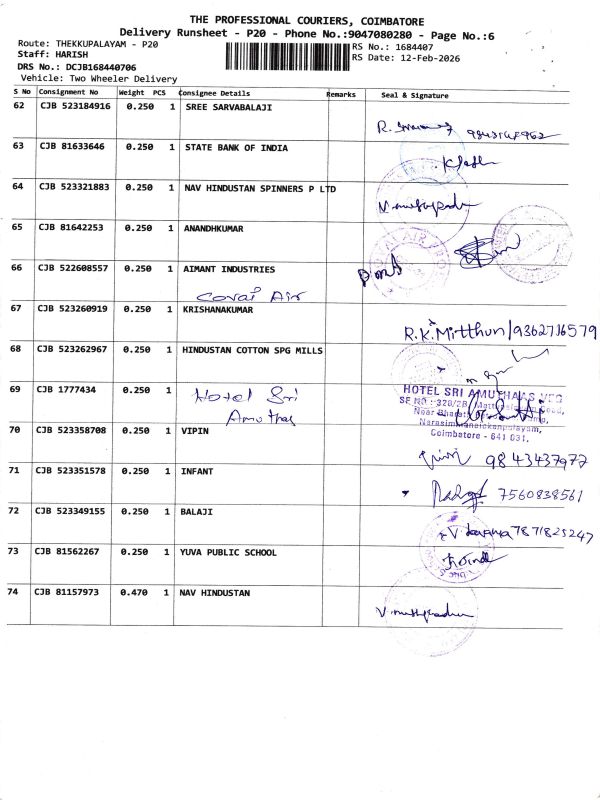 THE PROFESSIONAL COURIERS, COIMBATORE
Delivery Runsheet - P20 - Phone No.:9047080280 - Page No.:6
Route: THEKKUPALAYAM - P20
RS No.: 1684407
Staff: HARISH
RS Date: 12-Feb-2026
DRS No.: DCJB168440706
Vehicle: Two Wheeler Delivery
S No Consignment No Weight PCS Consignee Details Remarks Seal & Signature
62 CJB 523184916 0.250 1 SREE SARVABALAJI
63 CJB 81633646 0.250 1 STATE BANK OF INDIA
64 CJB 523321883 0.250 1 NAV HINDUSTAN SPINNERS P LTD
65 CJB 81642253 0.250 1 ANANDHKUMAR
66 CJB 522608557 0.250 1 AIMANT INDUSTRIES
Covai Air
67 CJB 523260919 0.250 1 KRISHANAKUMAR
R.K.Mitthun/9362716579
68 CJB 523262967 0.250 1 HINDUSTAN COTTON SPG MILLS
69 CJB 1777434 0.250 1 Hotel Sri
Amuthas
HOTEL SRI AMUTHAAS VEG
SF NO : 328/2B,
Near Bharat
Narasimhanaickenpalayam,
Coimbatore - 641 031.
70 CJB 523358708 0.250 1 VIPIN
9843437977
71 CJB 523351578 0.250 1 INFANT
7560838561
72 CJB 523349155 0.250 1 BALAJI
7871825247
73 CJB 81562267 0.250 1 YUVA PUBLIC SCHOOL
74 CJB 81157973 0.470 1 NAV HINDUSTAN